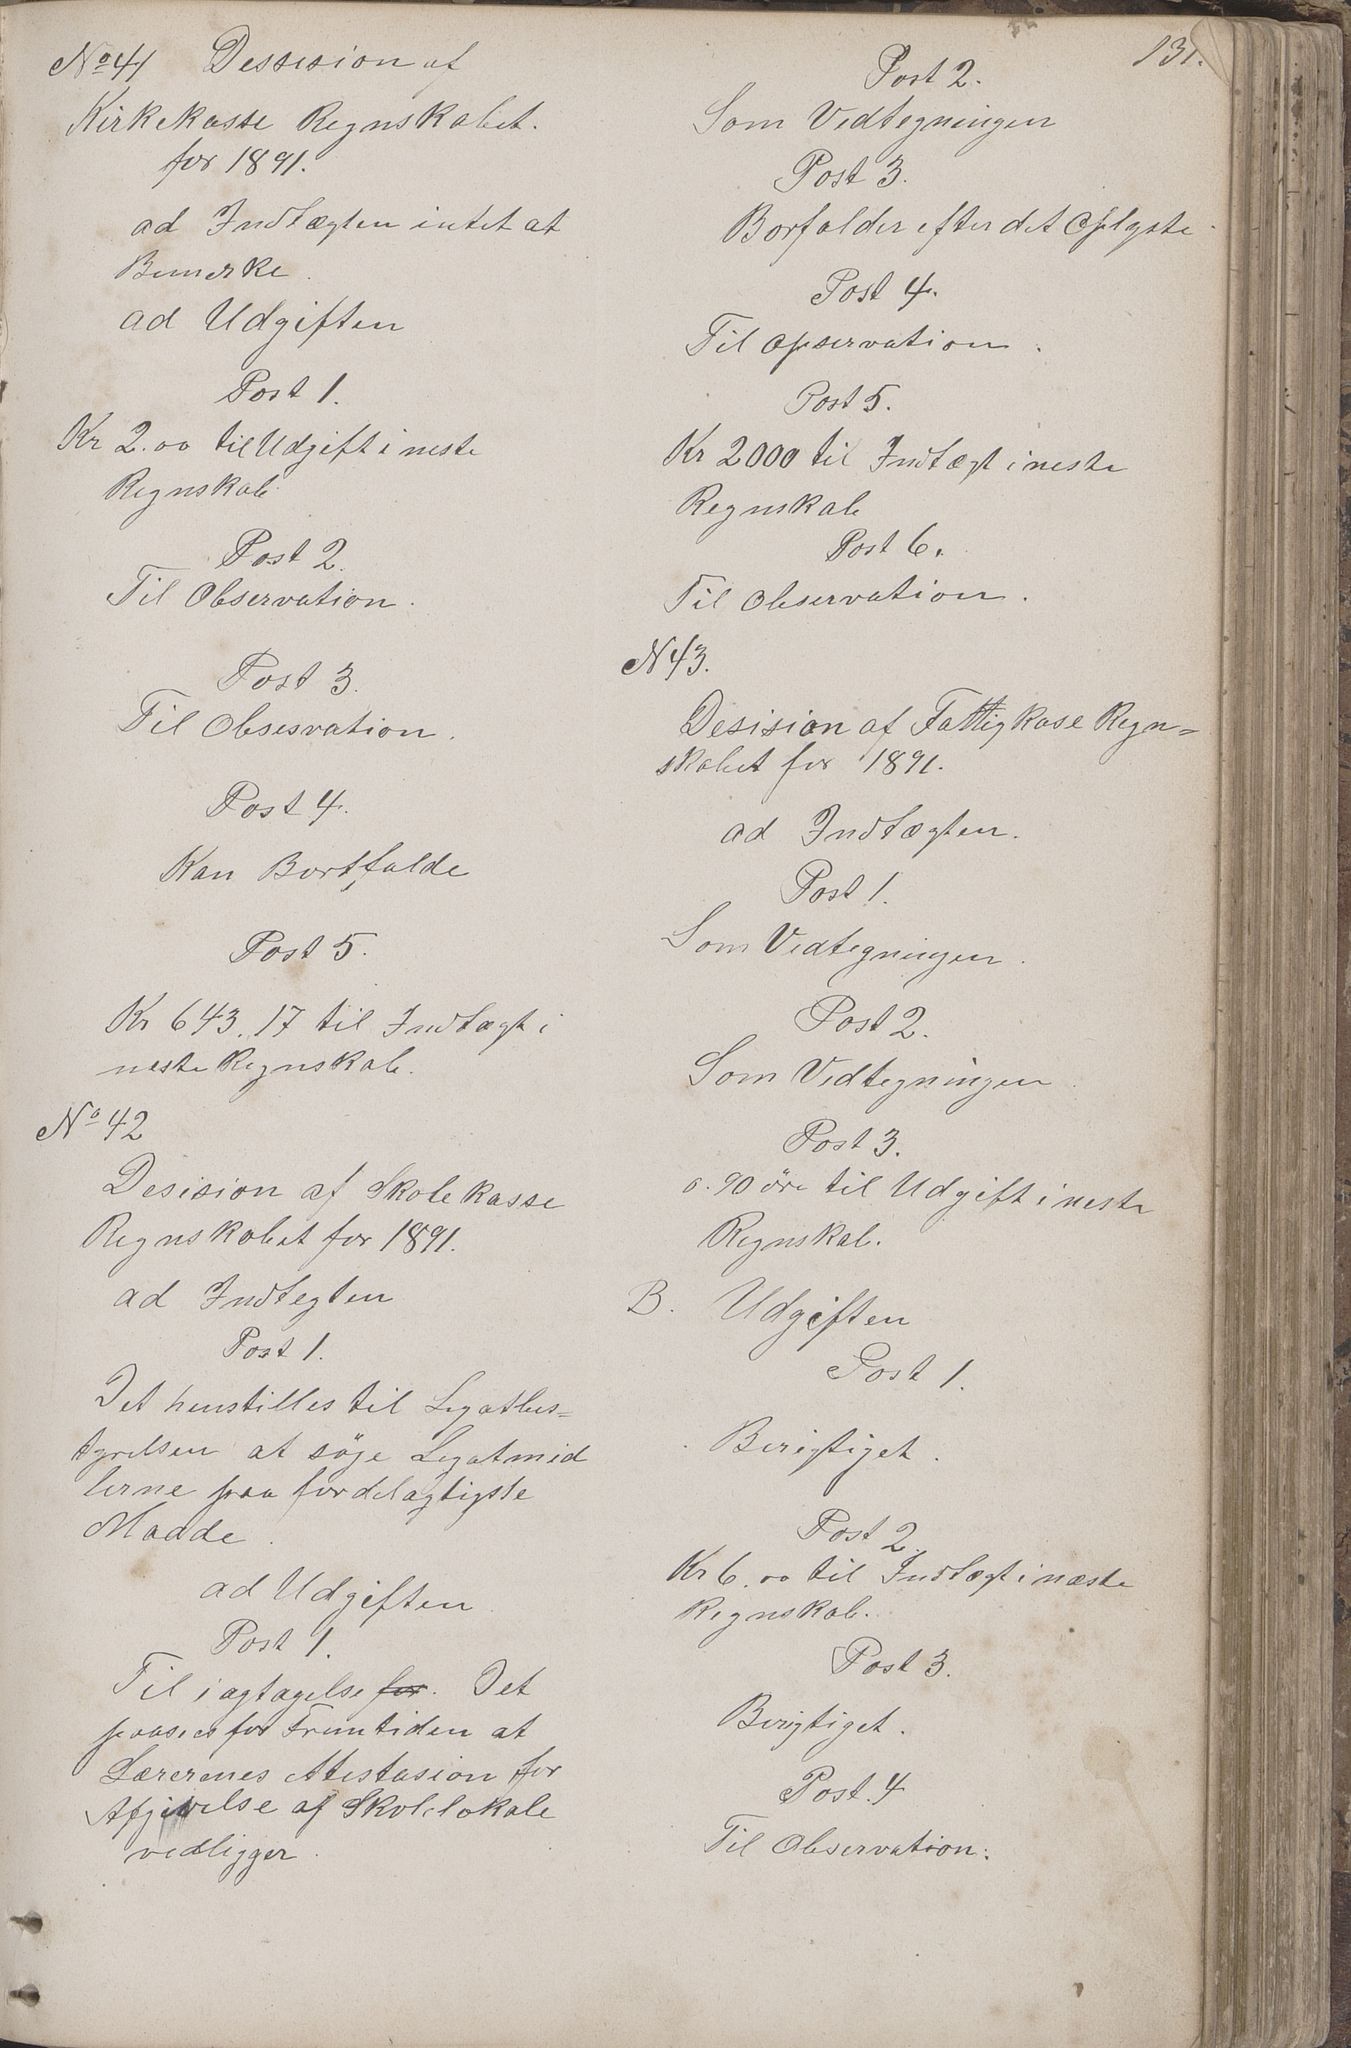 131.
No 41 Dessision af
Kirkekasse Regnskabet.
for 1891.
ad Indtægten intet at
Bemerke.
ad Udgiften
Post 1.
Kr 2.00 til Udgift i neste
Regnskab
Post 2.
Til Observation.
Post 3.
Til Observation.
Post 4.
Kan Bortfalde
Post 5.
Kr 643,17 til Indtægt i
neste Regnskab.
No 42
Desision af Skolekasse
Regnskabet for 1891.
ad Indtegten
Post 1.
Det henstilles til Legatbes=
tyrelsen at söge Legatmid
lerne paa fordelagtigste
Maade.
ad Udgiften
Post 1.
Til iagtagelse for. Det
paasees for Fremtiden at
Lærerenes Attestasion for
Afgivelse af Skolelokale
vedligger.
Post 2.
Som Vedtegningen
Post 3.
Borfalder efter det Oplyste.
Post 4.
Til Opservation.
Post 5.
Kr 2000 til Indtægt i neste
Regnskab
Post 6.
Til Observation.
N 43.
Desision af Fattigkase Regn=
skabet for 1891.
ad Indtægten.
Post 1.
Som Vedtegningen.
Post 2.
Som Vedtegningen
Post 3.
0.90 öre til Udgift i neste
Regnskab.
B. Udgiften
Post 1.
Berigtiget.
Post 2.
Kr 6.00 til Indtægt i næste
Regnskab.
Post 3.
Berigtiget.
Post. 4
Til Observation.